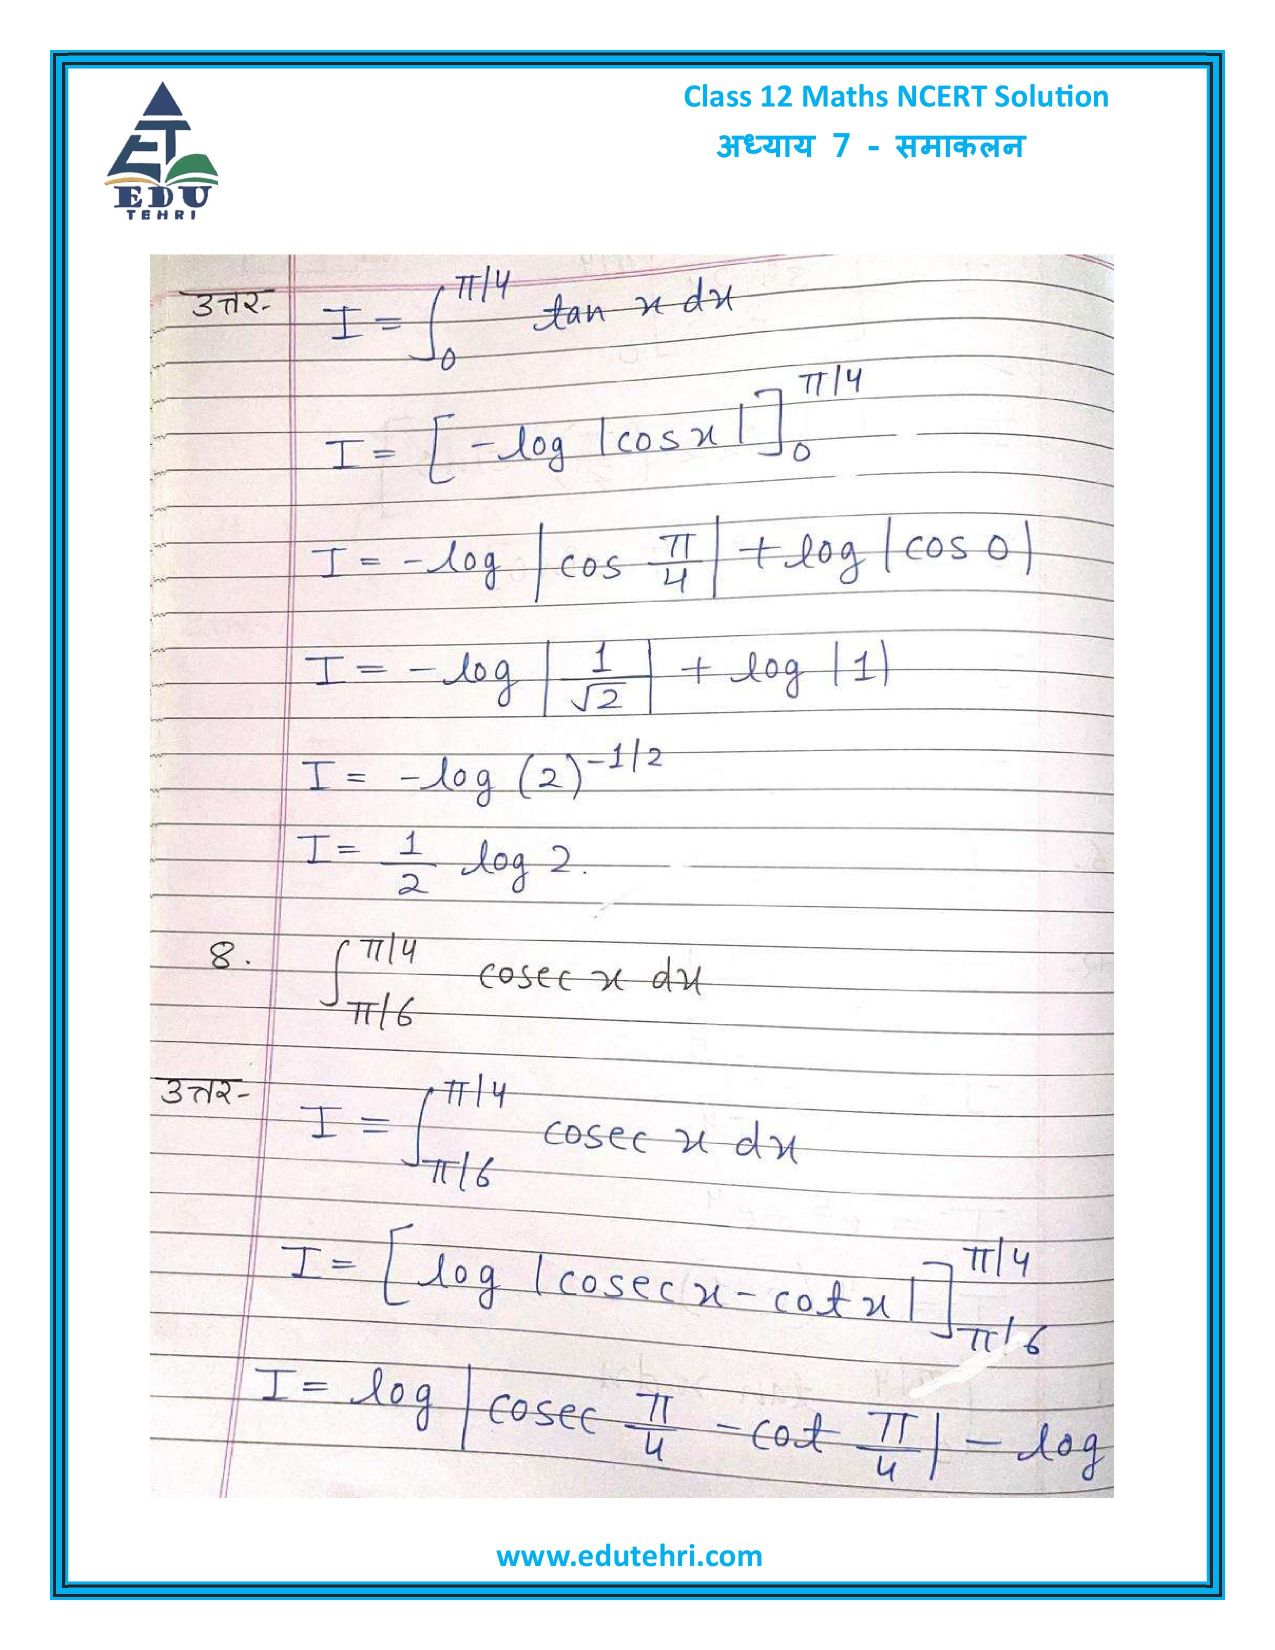 Class 12 Maths NCERT Solution
अध्याय 7 - समाकलन
EDU
TEHRI
उत्तर- I = ∫₀^π/4 tan x dx
I = [-log |cos x|]₀^π/4
I = -log |cos π/4| + log |cos 0|
I = -log |1/√2| + log |1|
I = -log (2)^-1/2
I = 1/2 log 2.
8. ∫_π/6^π/4 cosec x dx
उत्तर- I = ∫_π/6^π/4 cosec x dx
I = [log |cosec x - cot x|]_π/6^π/4
I = log |cosec π/4 - cot π/4| - log
www.edutehri.com